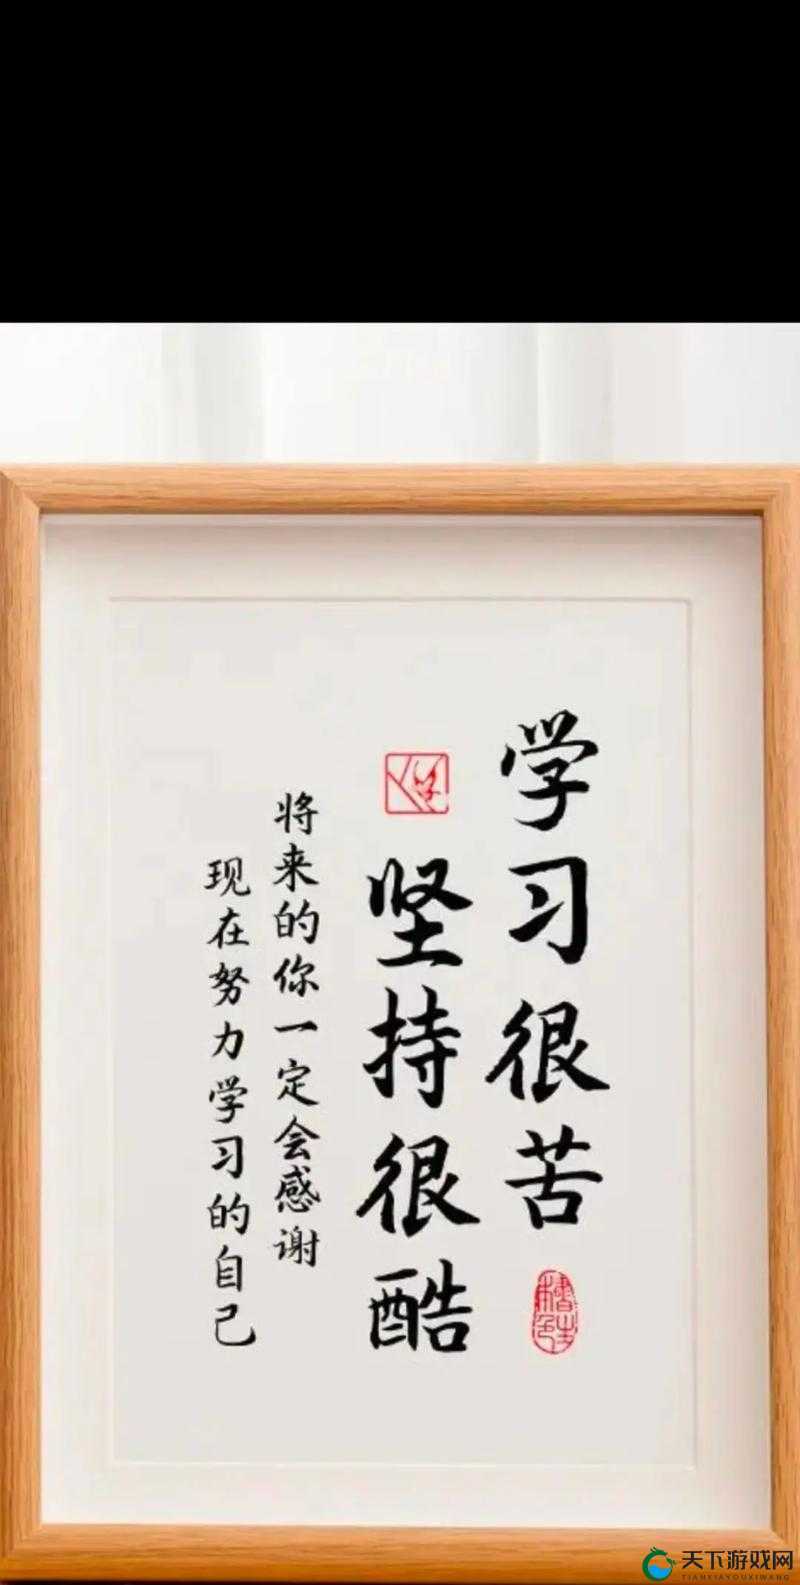 学习很苦
坚持很酷
将来的你一定会感谢
现在努力学习的自己
天下游戏网
TIANXIAYOUXIWANG